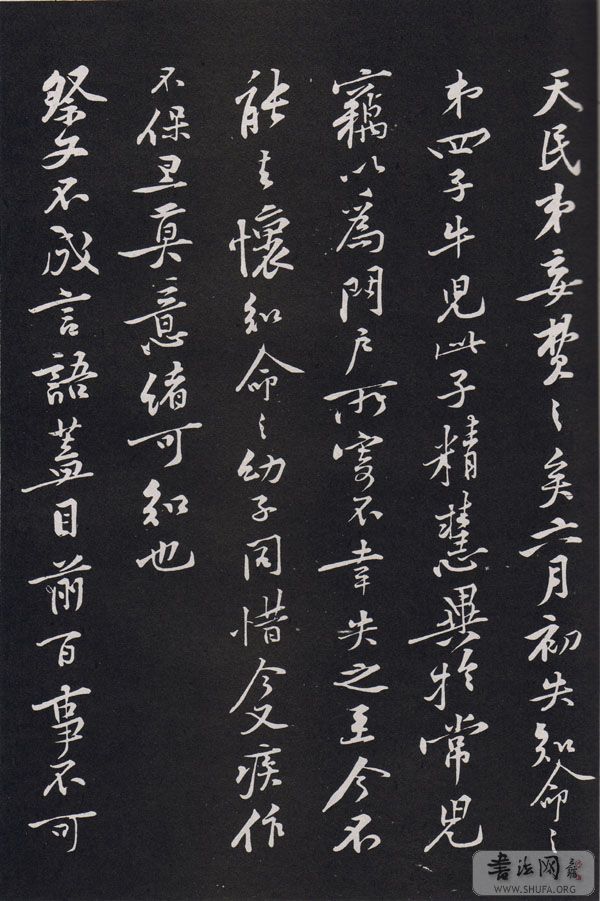 天民弟妾矣六月初失知命之
弟四子牛児此子精慧異於常児
竊以為門戶所寄不幸失之至今不
能去懷知命之幼子同惜今又疾作
不保旦莫意緒可知也
祭文不成言語蓋目前百事不可
書法网
WWW.SHUFA.ORG